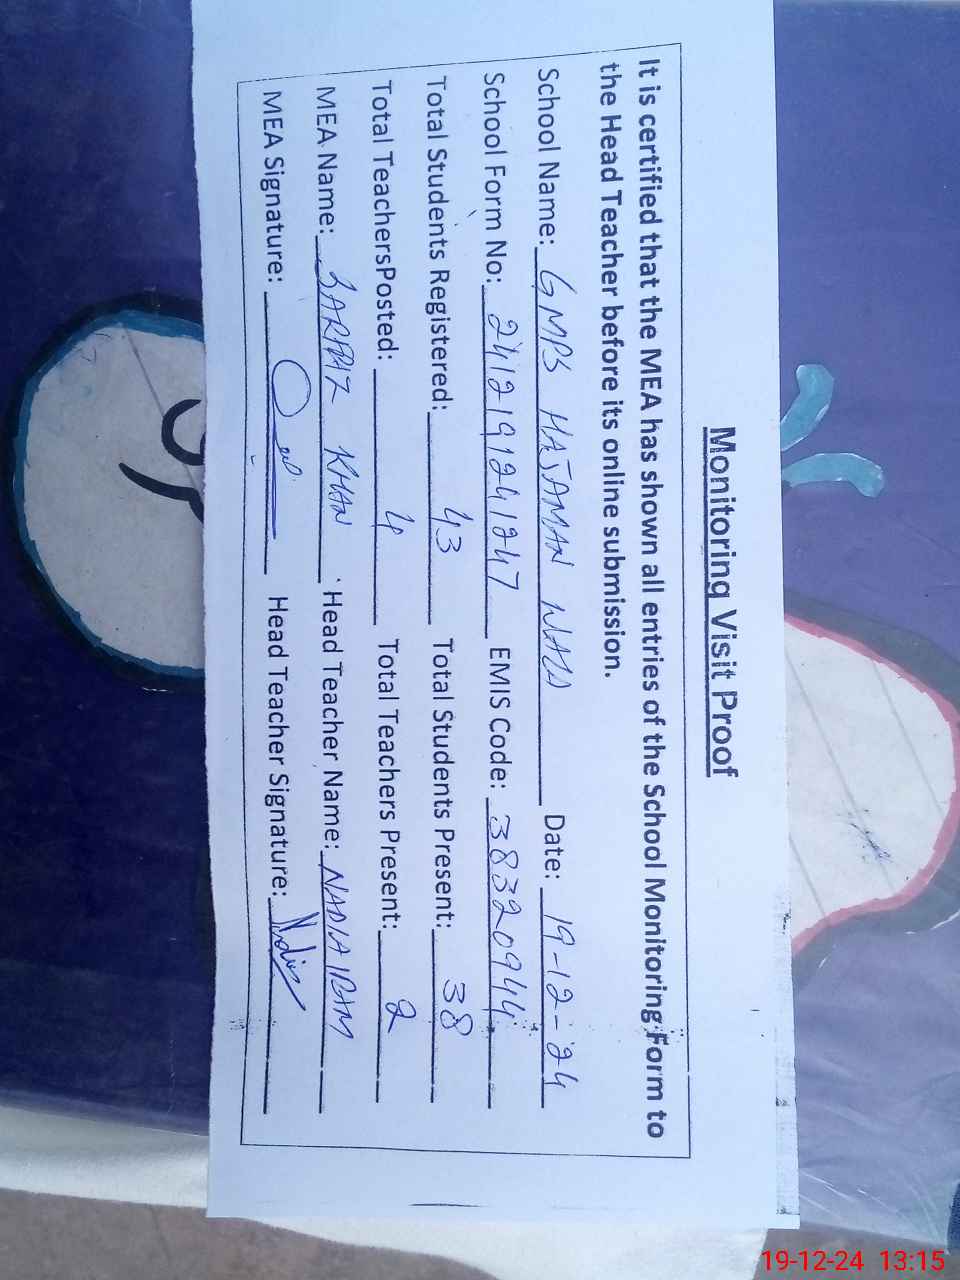 Monitoring Visit Proof
It is certified that the MEA has shown all entries of the School Monitoring Form to
the Head Teacher before its online submission.
School Name: GMPS HAJAMAN WALA Date: 19-12-24
School Form No: 2412191241247 EMIS Code: 38320944
Total Students Registered: 43 Total Students Present: 38
Total TeachersPosted: 4 Total Teachers Present: 2
MEA Name: SARFRAZ KHAN Head Teacher Name: NADIA IRAM
MEA Signature: Head Teacher Signature: Nadia
19-12-24 13:15